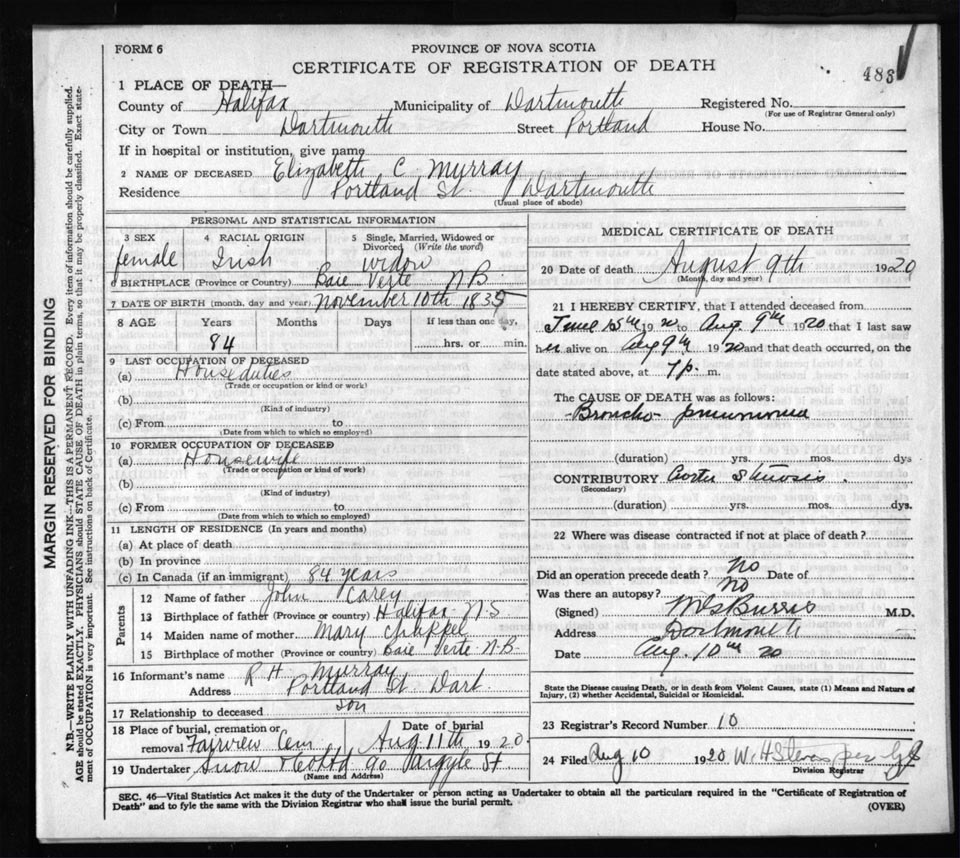 FORM 6
PROVINCE OF NOVA SCOTIA
CERTIFICATE OF REGISTRATION OF DEATH
483
1 PLACE OF DEATH—
County of Halifax Municipality of Dartmouth Registered No.
(For use of Registrar General only)
City or Town Dartmouth Street Portland House No.
If in hospital or institution, give name
2 NAME OF DECEASED Elizabeth C. Murray
Residence Portland St. Dartmouth
(Usual place of abode)
PERSONAL AND STATISTICAL INFORMATION
3 SEX 4 RACIAL ORIGIN 5 Single, Married, Widowed or Divorced (Write the word)
female Irish widow
6 BIRTHPLACE (Province or Country) Baie Verte N.B.
7 DATE OF BIRTH (month, day and year) November 10th 1835
8 AGE Years Months Days If less than one day,
84 hrs. or min.
9 LAST OCCUPATION OF DECEASED
(a) House duties
(Trade or occupation or kind or work)
(b)
(Kind of industry)
(c) From to
(Date from which to which so employed)
10 FORMER OCCUPATION OF DECEASED
(a) Housewife
(Trade or occupation or kind of work)
(b)
(Kind of industry)
(c) From to
(Date from which to which so employed)
11 LENGTH OF RESIDENCE (In years and months)
(a) At place of death
(b) In province
(c) In Canada (if an immigrant) 84 years
Parents
12 Name of father John Carey
13 Birthplace of father (Province or country) Halifax N.S
14 Maiden name of mother Mary Chappel
15 Birthplace of mother (Province or country) Baie Verte N-B-
16 Informant's name R. H. Murray
Address Portland St. Dart
17 Relationship to deceased son
18 Place of burial, cremation or removal Fairview Cem Date of burial Aug 11th 1920
19 Undertaker Snow & Co Ltd 90 Argyle St
(Name and Address)
MEDICAL CERTIFICATE OF DEATH
20 Date of death August 9th 1920
(Month, day and year)
21 I HEREBY CERTIFY, that I attended deceased from
June 15th 1920 to Aug. 9th 1920 that I last saw
her alive on Aug 9th 1920 and that death occurred, on the
date stated above, at 7 p. m.
The CAUSE OF DEATH was as follows:
Broncho- pneumonia
(duration) yrs. mos. dys
CONTRIBUTORY Aortic Stenosis.
(Secondary)
(duration) yrs. mos. dys.
22 Where was disease contracted if not at place of death?
Did an operation precede death? No Date of
Was there an autopsy? No
(Signed) M D. M.D.
Address Dartmouth
Date Aug. 10th 20
State the Disease causing Death, or in death from Violent Causes, state (1) Means and Nature of
Injury, (2) whether Accidental, Suicidal or Homicidal.
23 Registrar's Record Number 10
24 Filed Aug 10 1920 W. H Stevens per
Division Registrar
SEC. 46—Vital Statistics Act makes it the duty of the Undertaker or person acting as Undertaker to obtain all the particulars required in the "Certificate of Registration of
Death" and to fyle the same with the Division Registrar who shall issue the burial permit.
(OVER)
MARGIN RESERVED FOR BINDING
N.B.—WRITE PLAINLY WITH UNFADING INK—THIS IS A PERMANENT RECORD. Every item of information should be carefully supplied.
AGE should be stated EXACTLY. PHYSICIANS should STATE CAUSE OF DEATH in plain terms, so that it may be properly classified. Exact state-
ment of OCCUPATION is very important. See instructions on back of Certificate.